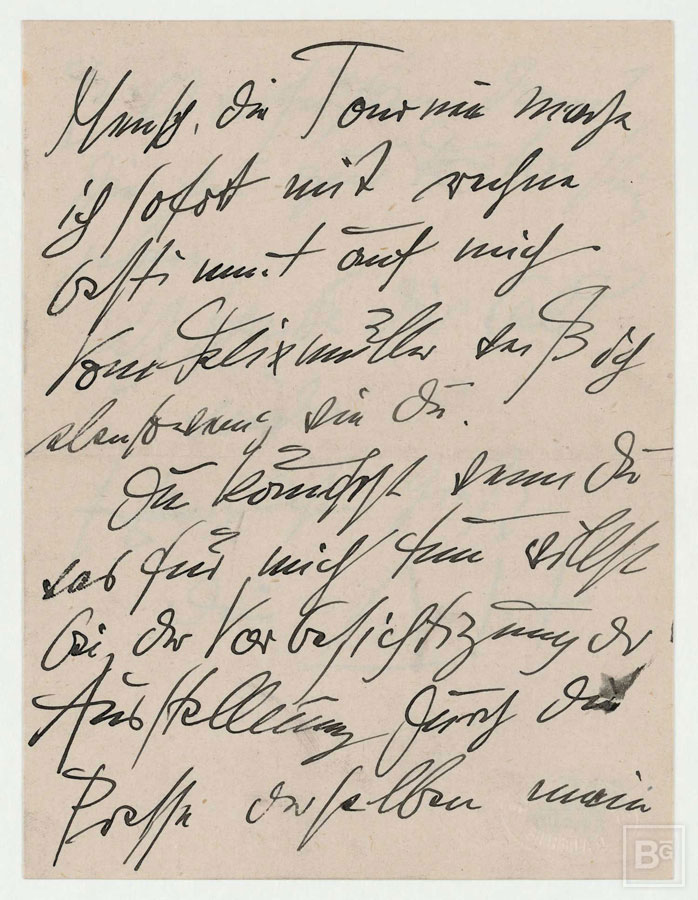 Mensch, die Tournee mache
ich sofort mit rechne
bestimmt auf mich
Von Felixmüller weiß ich
ebensowenig wie Du.
Du könntest wenn Du
was für mich tun willst
bei der Vorbesichtigung der
Ausstellung durch die
Presse derselben mein
BG